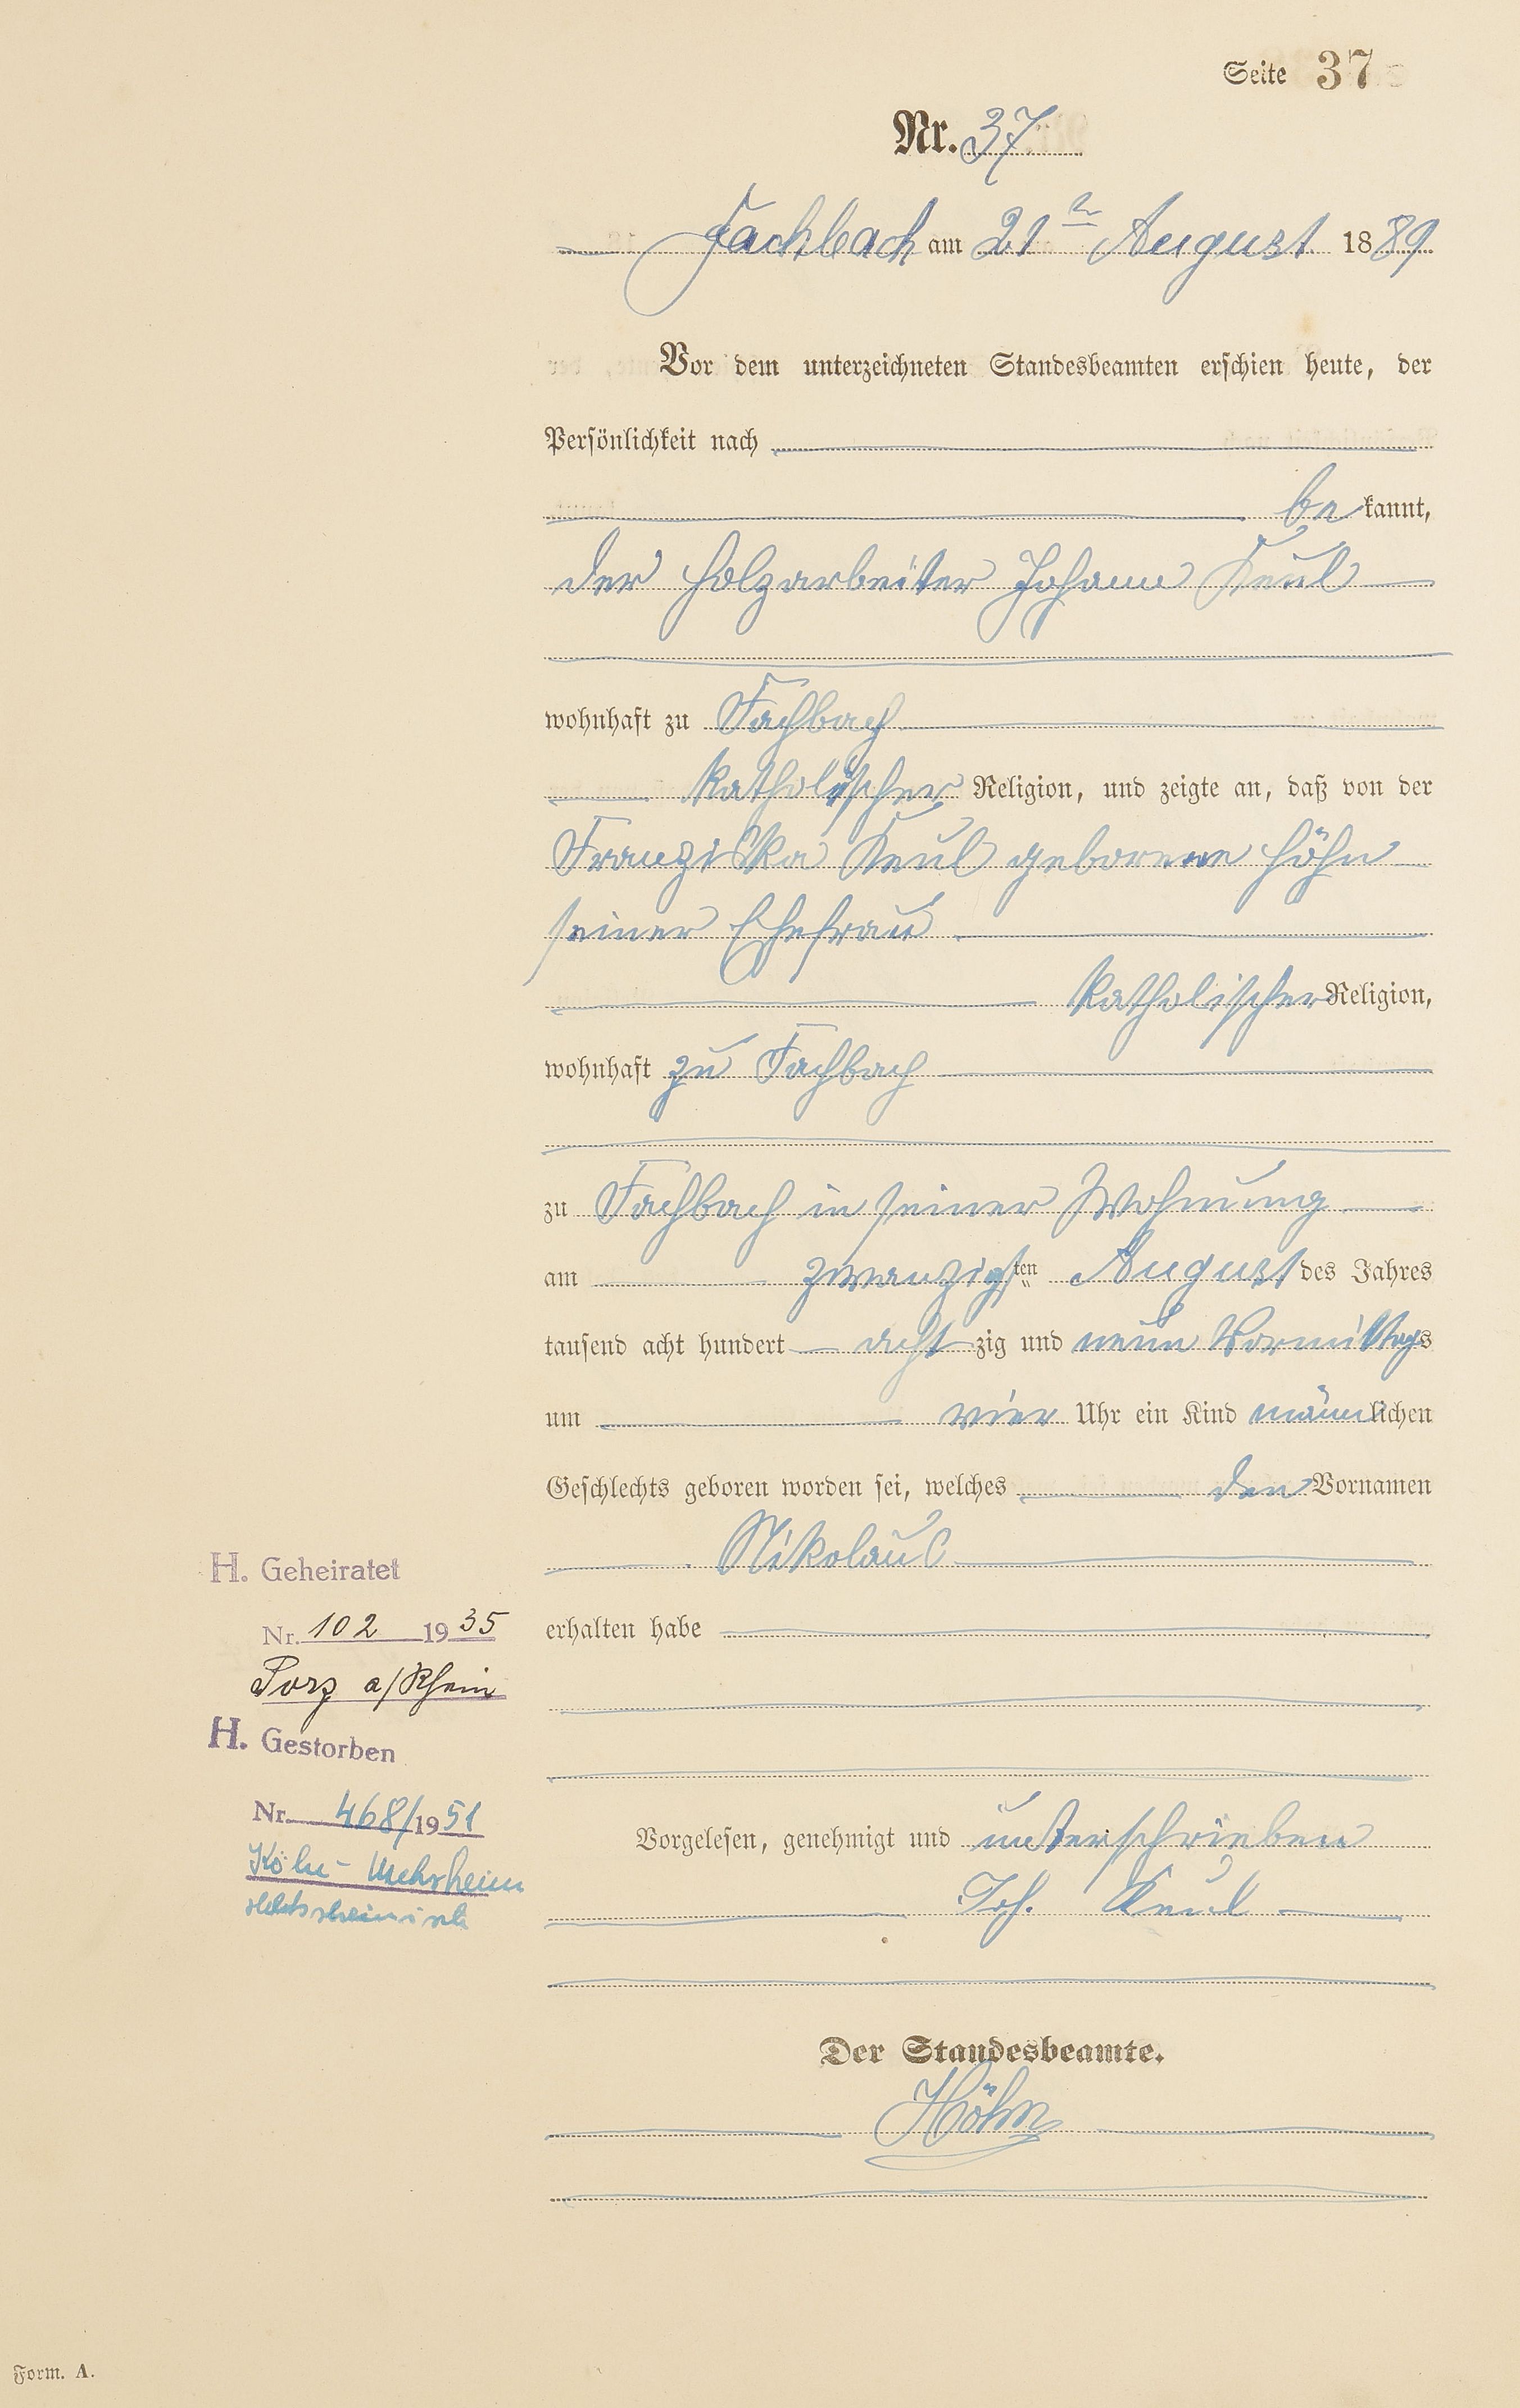 Seite 37
Nr. 37
Fachbach am 21ten August 1889
Vor dem unterzeichneten Standesbeamten erschien heute, der
Persönlichkeit nach
bekannt,
der Holzarbeiter Johann Keul
wohnhaft zu Fachbach
katholischer Religion, und zeigte an, daß von der
Franziska Keul geborene Höhn
seiner Ehefrau
katholischer Religion,
wohnhaft zu Fachbach
zu Fachbach in seiner Wohnung
am zwanzigsten August des Jahres
tausend acht hundert achtzig und neun Vormittags
um vier Uhr ein Kind männlichen
Geschlechts geboren worden sei, welches den Vornamen
Nikolaus
erhalten habe
H. Geheiratet
Nr. 102 1935
Porz a/Rhein
H. Gestorben
Nr. 468/1951
Köln-
rechtsrheinisch
Vorgelesen, genehmigt und unterschrieben
Joh. Keul
Der Standesbeamte.
Höhn
Form. A.